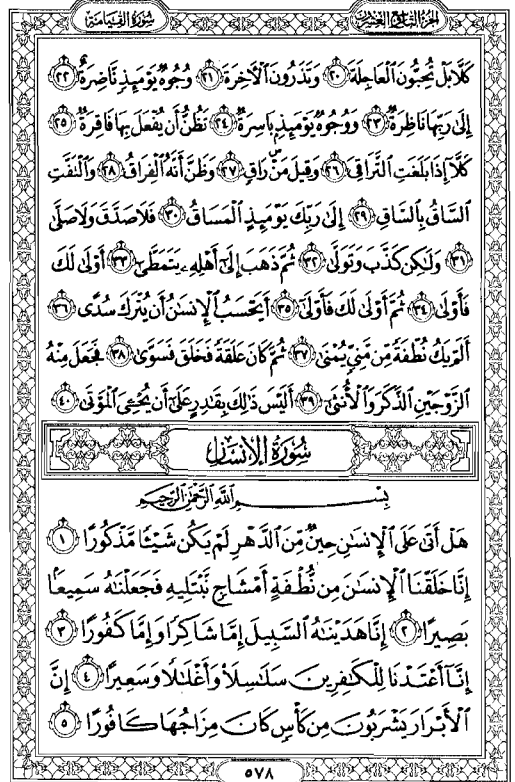 الجزء التاسع والعشرون
سورة القيامة
كَلَّا بَلْ تُحِبُّونَ ٱلْعَاجِلَةَ ٢٠ وَتَذَرُونَ ٱلْأَخِرَةَ ٢١ وُجُوهٌ يَوْمَئِذٍ نَّاضِرَةٌ ٢٢
إِلَىٰ رَبِّهَا نَاظِرَةٌ ٢٣ وَوُجُوهٌ يَوْمَئِذٍۭ بَاسِرَةٌ ٢٤ تَظُنُّ أَن يُفْعَلَ بِهَا فَاقِرَةٌ ٢٥
كَلَّآ إِذَا بَلَغَتِ ٱلتَّرَاقِىَ ٢٦ وَقِيلَ مَنْۜ رَاقٍ ٢٧ وَظَنَّ أَنَّهُ ٱلْفِرَاقُ ٢٨ وَٱلْتَفَّتِ
ٱلسَّاقُ بِٱلسَّاقِ ٢٩ إِلَىٰ رَبِّكَ يَوْمَئِذٍ ٱلْمَسَاقُ ٣٠ فَلَا صَدَّقَ وَلَا صَلَّىٰ
٣١ وَلَٰكِن كَذَّبَ وَتَوَلَّىٰ ٣٢ ثُمَّ ذَهَبَ إِلَىٰٓ أَهْلِهِۦ يَتَمَطَّىٰٓ ٣٣ أَوْلَىٰ لَكَ
فَأَوْلَىٰ ٣٤ ثُمَّ أَوْلَىٰ لَكَ فَأَوْلَىٰٓ ٣٥ أَيَحْسَبُ ٱلْإِنسَٰنُ أَن يُتْرَكَ سُدًى ٣٦
أَلَمْ يَكُ نُطْفَةً مِّن مَّنِىٍّ يُمْنَىٰ ٣٧ ثُمَّ كَانَ عَلَقَةً فَخَلَقَ فَسَوَّىٰ ٣٨ فَجَعَلَ مِنْهُ
ٱلزَّوْجَيْنِ ٱلذَّكَرَ وَٱلْأُنثَىٰٓ ٣٩ أَلَيْسَ ذَٰلِكَ بِقَٰدِرٍ عَلَىٰٓ أَن يُحْـِۧىَ ٱلْمَوْتَىٰ ٤٠
سورة الإنسان
بِسْمِ ٱللَّهِ ٱلرَّحْمَٰنِ ٱلرَّحِيمِ
هَلْ أَتَىٰ عَلَى ٱلْإِنسَٰنِ حِينٌ مِّنَ ٱلدَّهْرِ لَمْ يَكُن شَيْـًٔا مَّذْكُورًا ١
إِنَّا خَلَقْنَا ٱلْإِنسَٰنَ مِن نُّطْفَةٍ أَمْشَاجٍ نَّبْتَلِيهِ فَجَعَلْنَٰهُ سَمِيعًۢا
بَصِيرًا ٢ إِنَّا هَدَيْنَٰهُ ٱلسَّبِيلَ إِمَّا شَاكِرًا وَإِمَّا كَفُورًا ٣
إِنَّآ أَعْتَدْنَا لِلْكَٰفِرِينَ سَلَٰسِلَا۟ وَأَغْلَٰلًا وَسَعِيرًا ٤ إِنَّ
ٱلْأَبْرَارَ يَشْرَبُونَ مِن كَأْسٍ كَانَ مِزَاجُهَا كَافُورًا ٥
٥٧٨